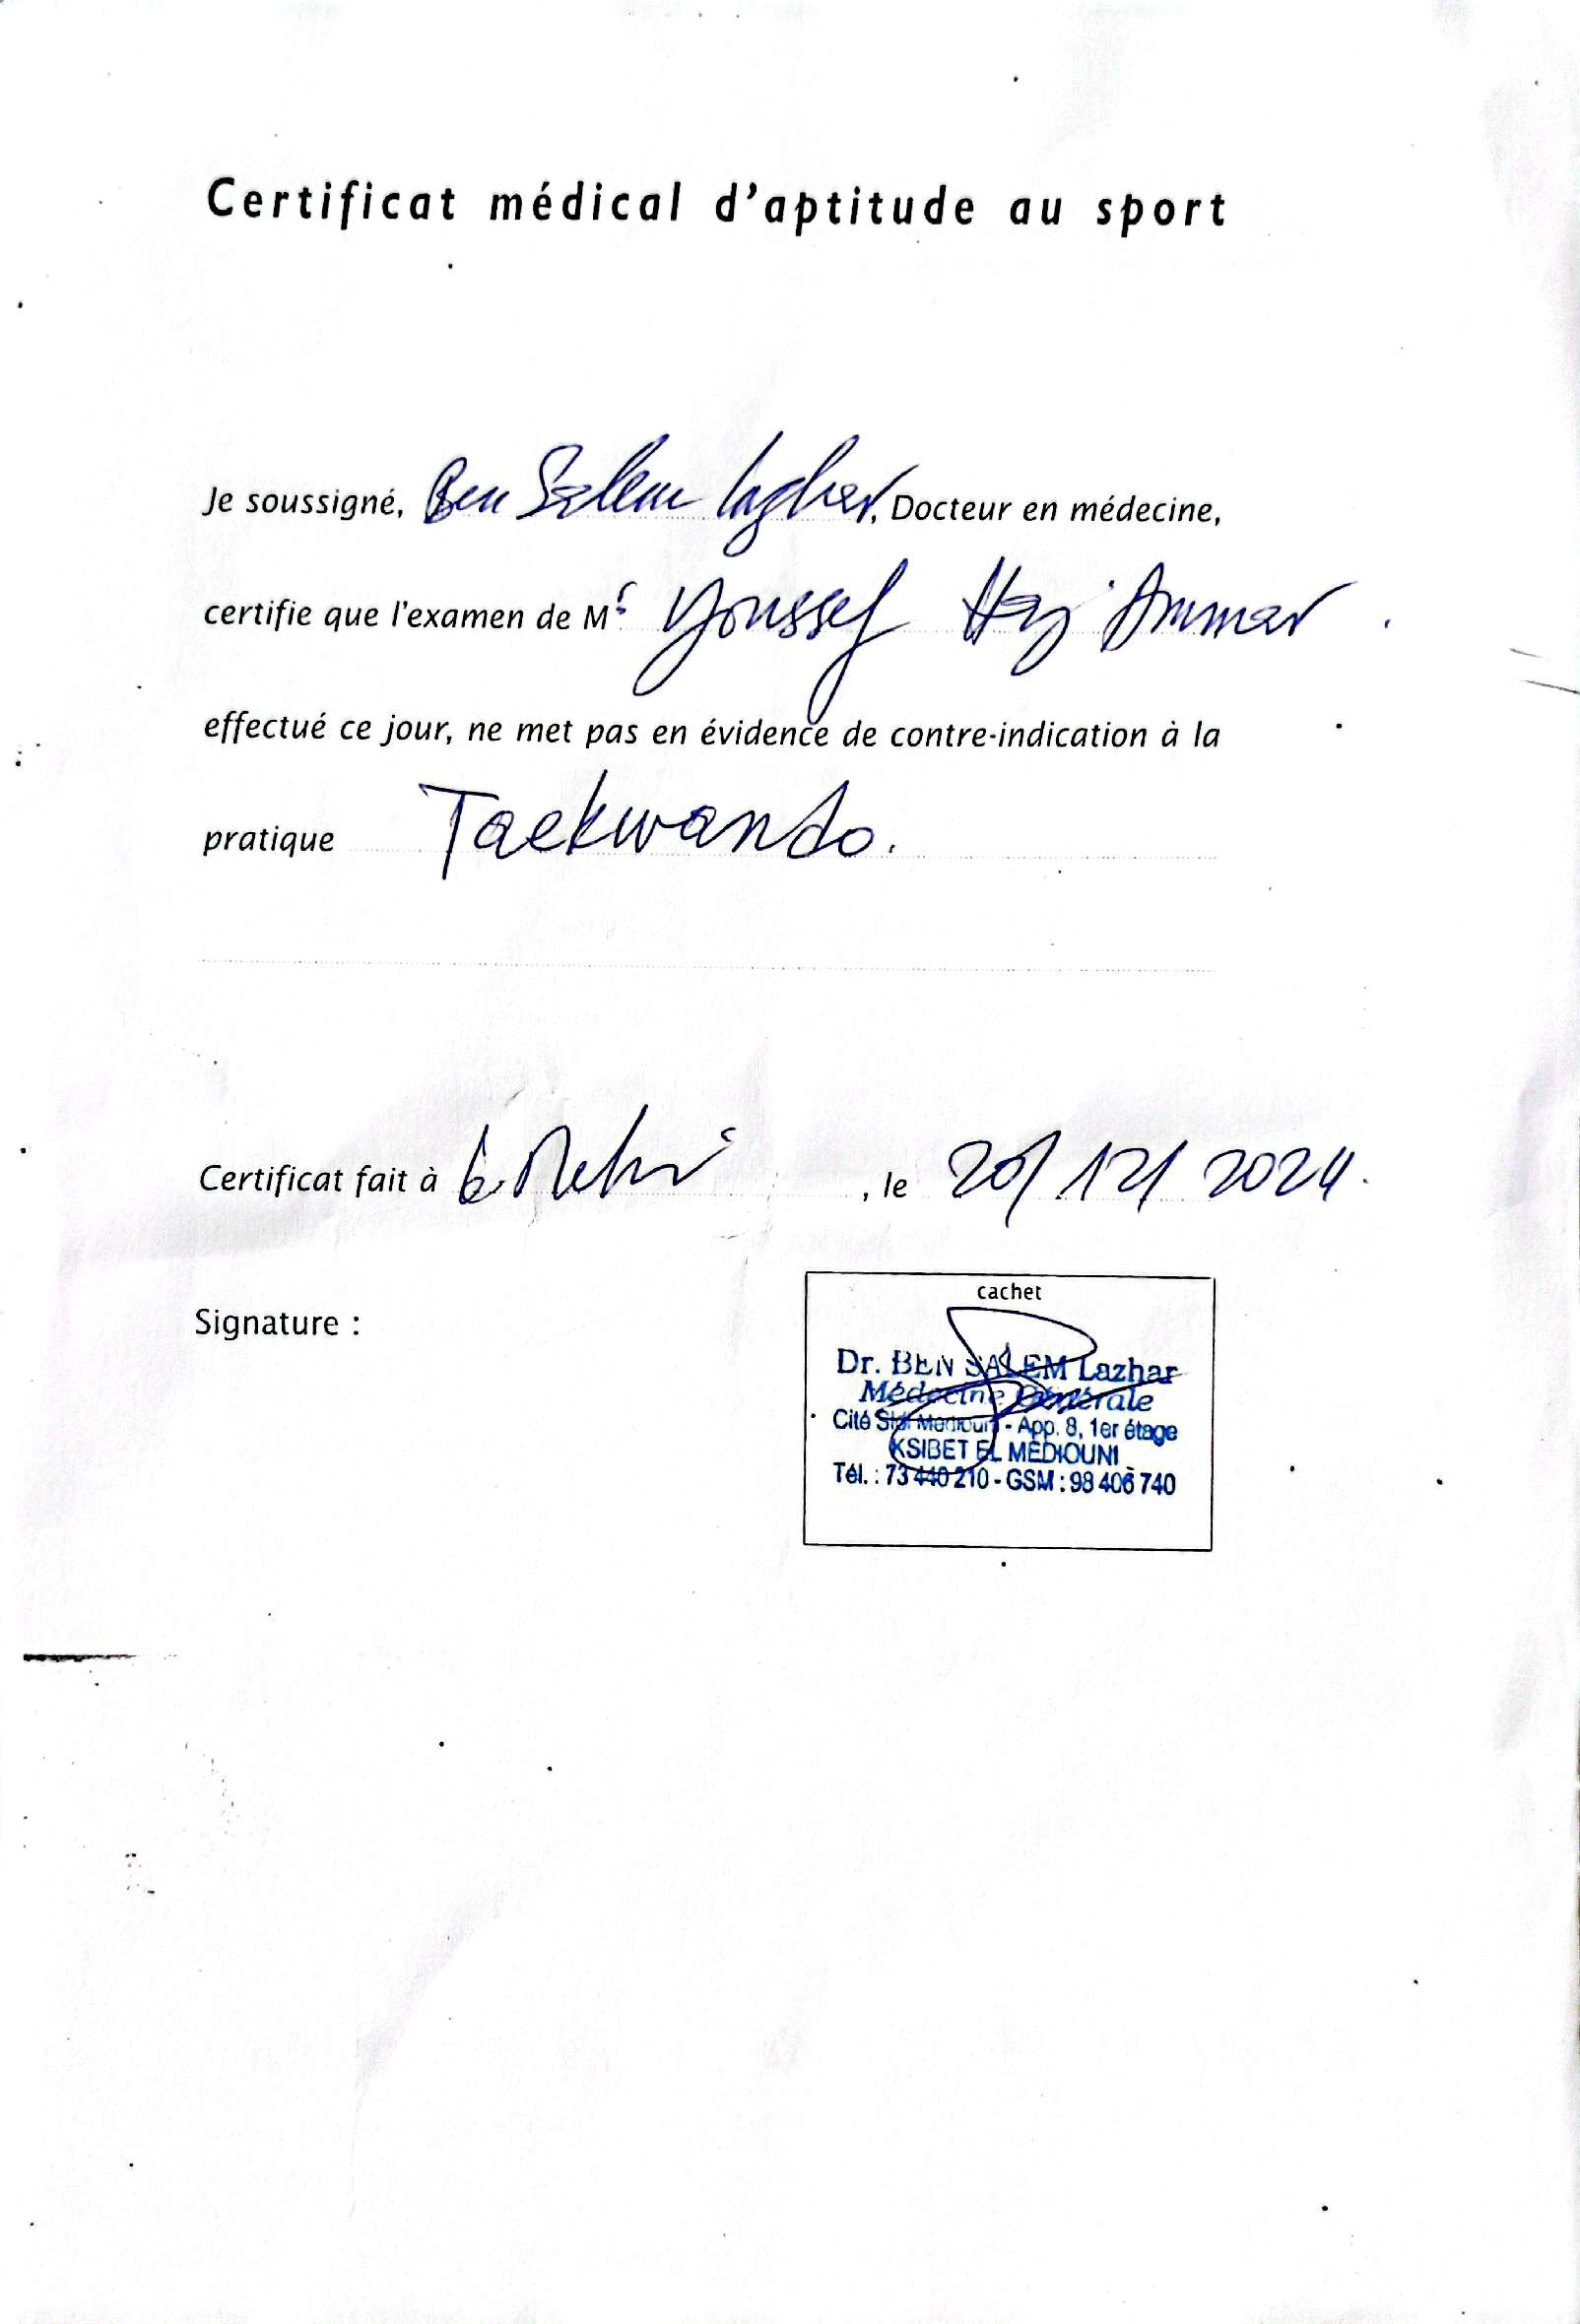 Certificat médical d'aptitude au sport
Je soussigné, Ben Salem Lazhar, Docteur en médecine,
certifie que l'examen de Mr Youssef Haj Ammar
effectué ce jour, ne met pas en évidence de contre-indication à la
pratique Taekwando.
Certificat fait à , le 20/12/2024.
Signature :
cachet
Dr. BEN SALEM Lazhar
Médecine Générale
Cité Sidi Mediouni - App. 8, 1er étage
KSIBET EL MEDIOUNI
Tél. : 73 440 210 - GSM : 98 406 740